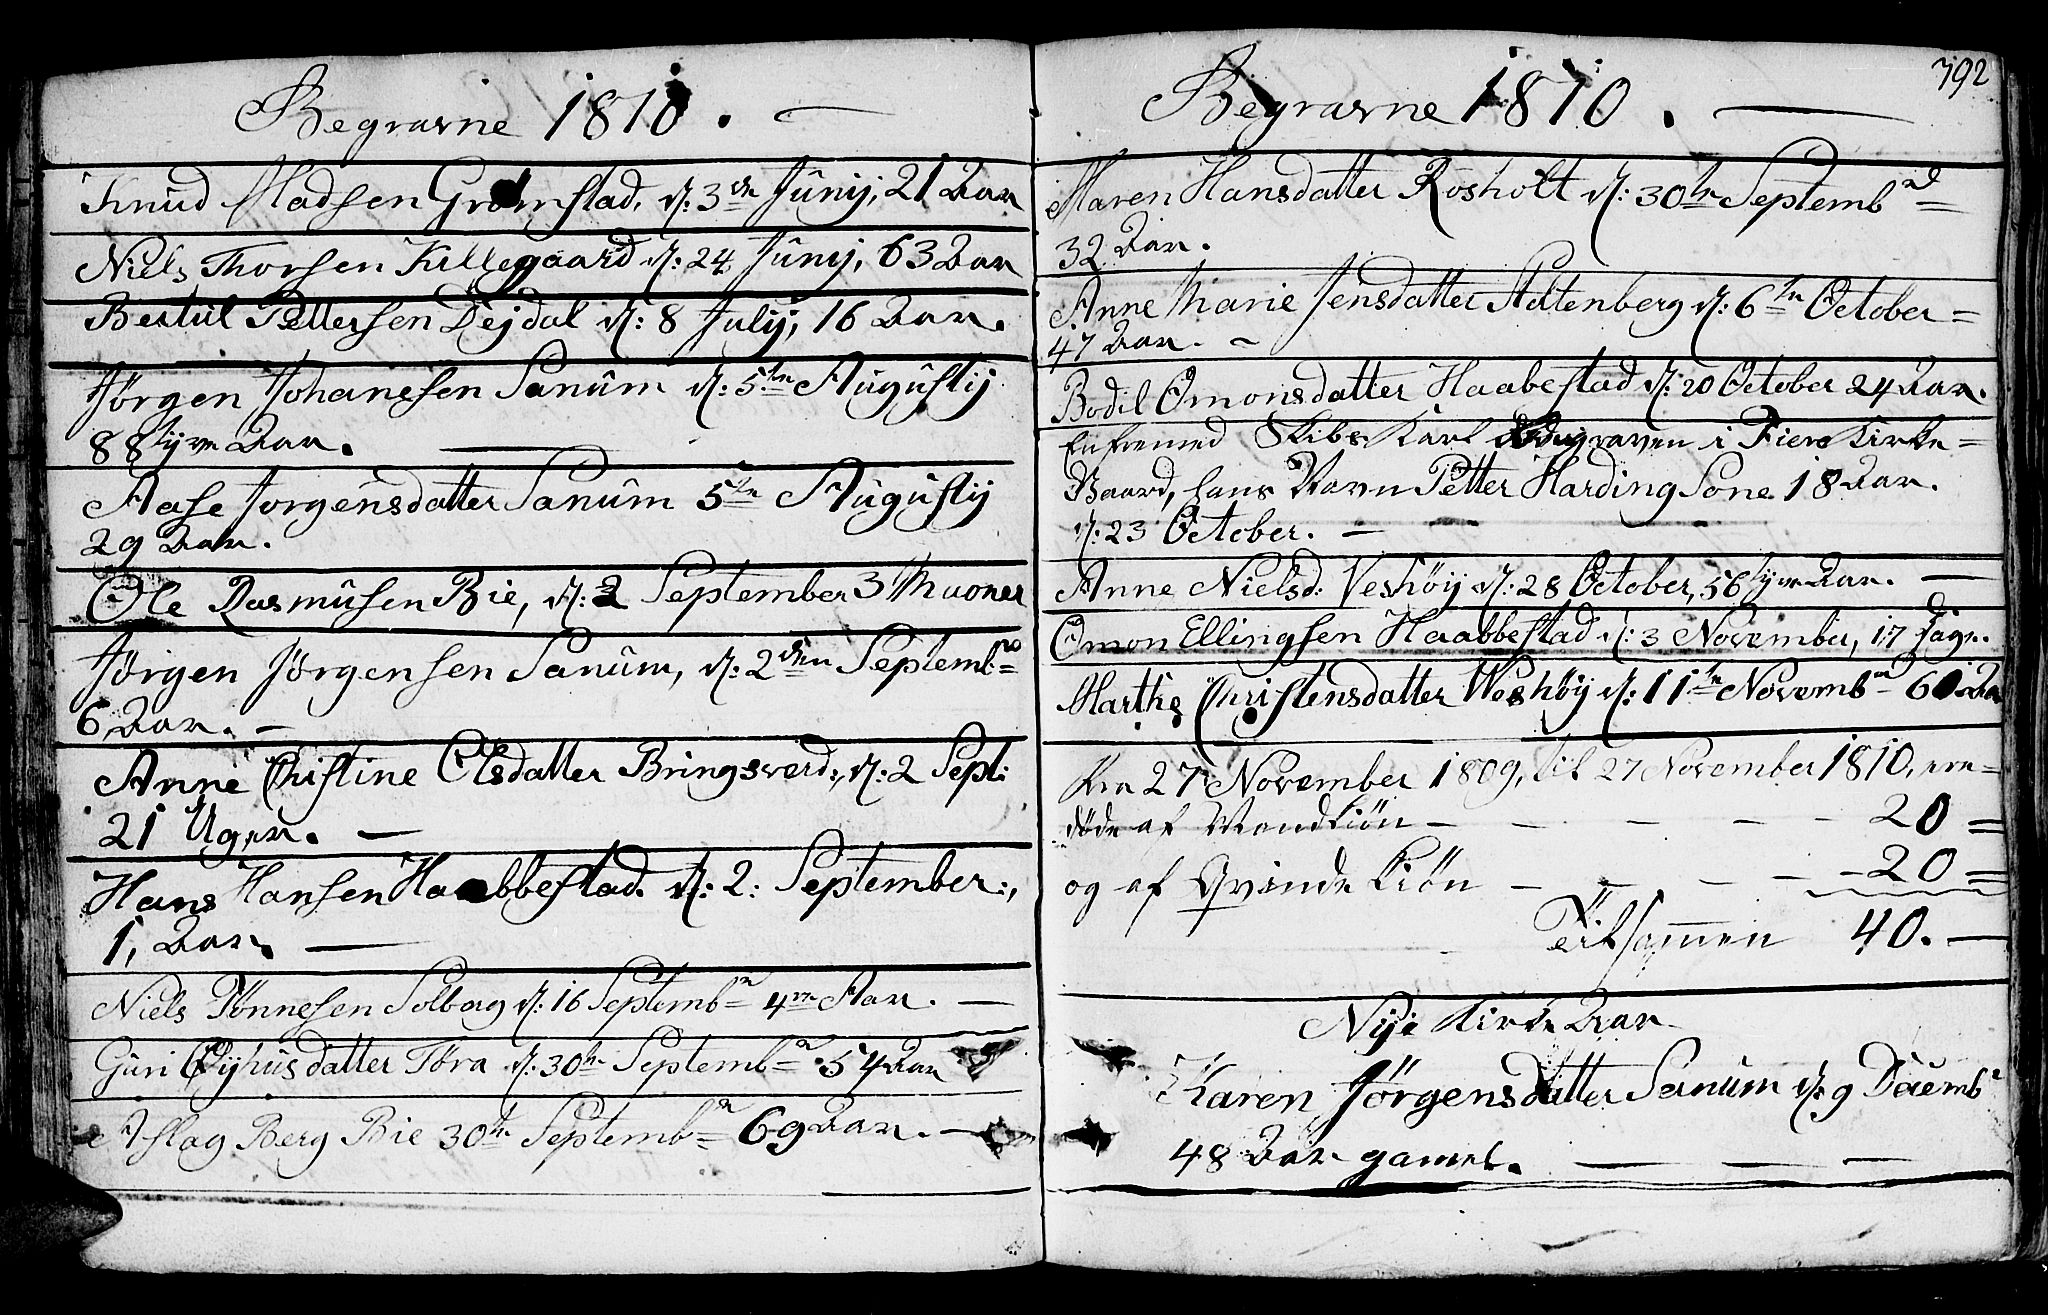 Begravne 1810. —
Knud Madsen Grømstad, d: 3de Junij, 21 Aar
Niels Thorsen Killegaard d: 24 Junij, 63 Aar
Bertul Pettersen Dejdal d: 8 Julij, 16 Aar.
Jørgen Johanesen Sanum d: 5te Augustij
88tyve Aar. —
Aase Jorgensdatter Sanum 5te Augustij
29 Aar.
Ole Rasmusen Bie, d: 2 September 3 Maaner
Jørgen Jørgensen Sanum, d: 2den Septembr
6 Aar. —
Anne Christine Olsdatter Bringsverd:, d: 2 Sept:
21 Uger. —
Hans Hansen Haabbestad. d: 2: September:,
1, Aar. —
Niels Tønnesen Solborg d: 16 Septembr 4re Aar. —
Guri Øyhusdatter Töra d: 30te Septembr 54 Aar
Aslag Berg Bie 30te Septembr 69 Aar. —
Begravne 1810. —
792
Maren Hansdatter Rosholt d: 30te Septemb
32 Aar.
Anne Marie Jensdatter Altenberg d: 6te October =
47 Aar. —
Bodil Omonsdatter Haabestad d: 20 October 24 Aar.
En fremed Skibs Karl begraven i Fiere Kirke=
Gaard, hans Navn Petter Harding Sone 18 Aar.
d: 23 October. —
Anne Nielsd: Veshöij d: 28 October, 56tyve Aar. —
Omon Ellingsen Haabbestad d: 3 November, 17 Dage.
Marthe Christensdatter Weshöy d: 11te Novembr 60 Aar
Fra 27 November 1809, til 27 November 1810, ere=
døde af Mandkiön — — — — — 20 =
og af Qvinde kiön — — — — — 20 =
Tilsamen 40. —
Nye Kirke Aar
Karen Jørgensdatter Sanum d: 9 Decembr
48 Aar gamel. — — —